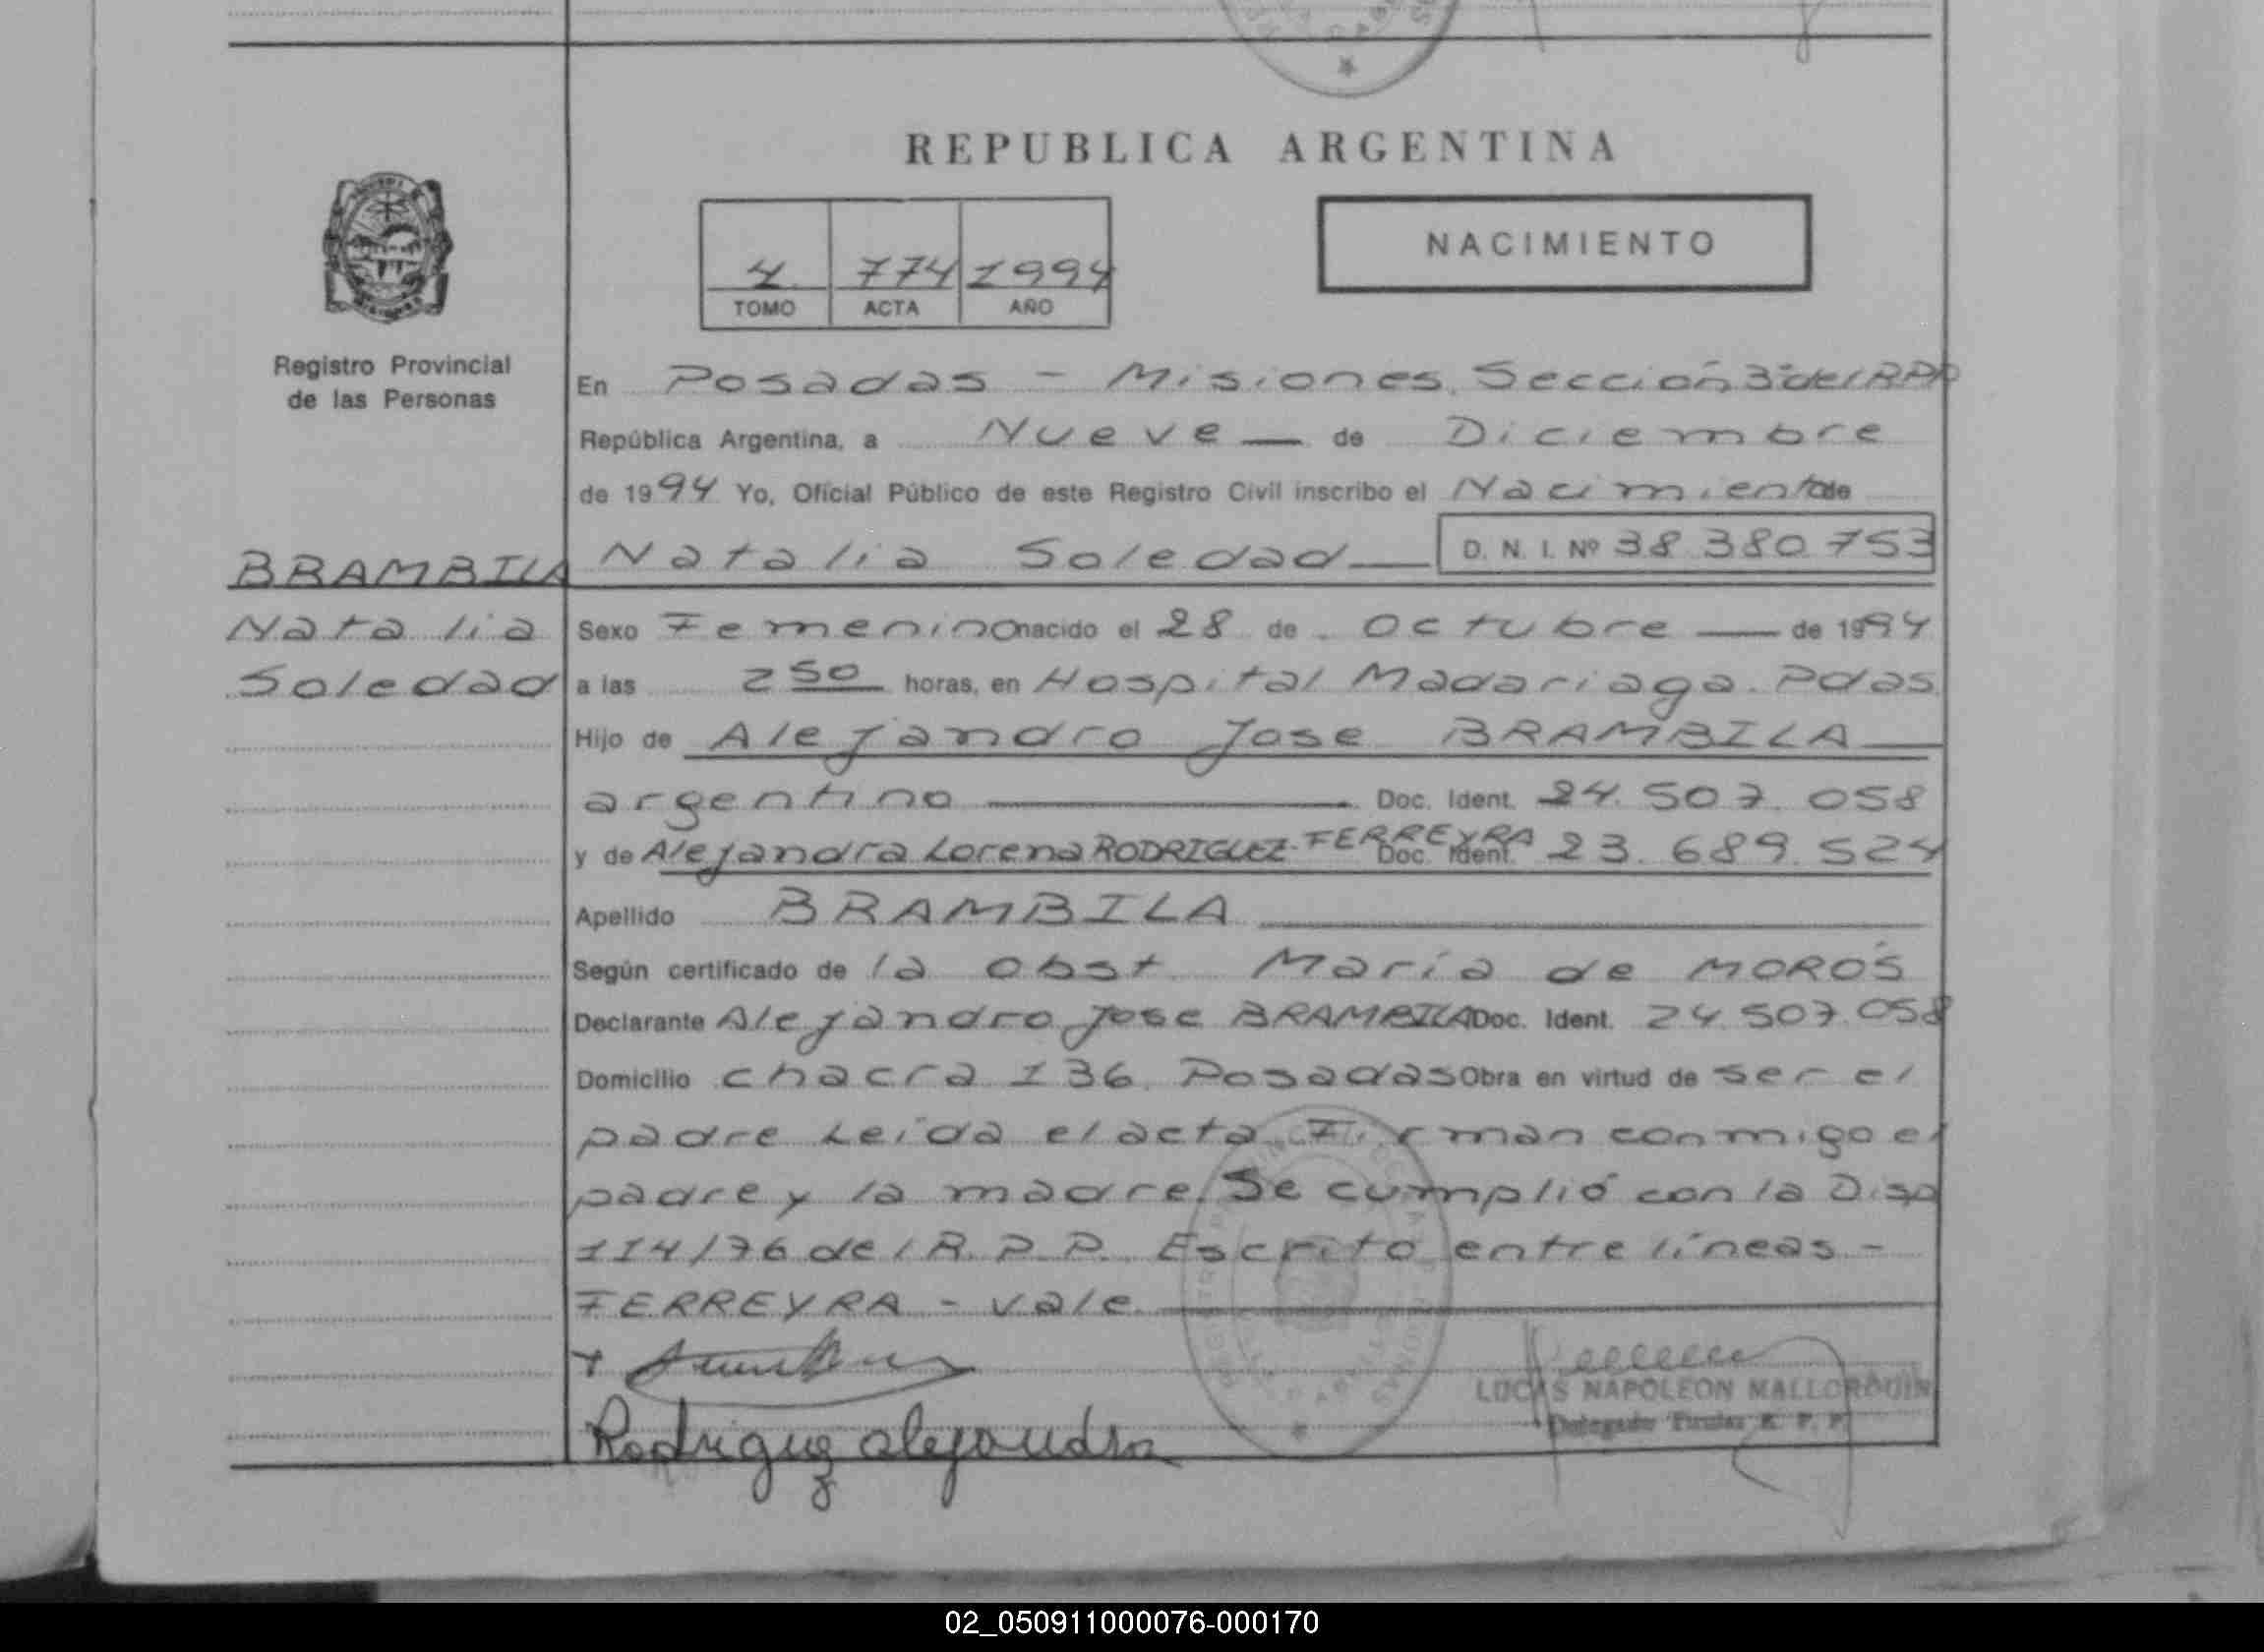 REPUBLICA ARGENTINA
NACIMIENTO
774 1994
TOMO ACTA AÑO
Registro Provincial
de las Personas
En Posadas - Misiones. Sección 3ª del RPP
República Argentina, a Nueve — de Diciembre
de 1994 Yo, Oficial Público de este Registro Civil inscribo el Nacimiento de
BRAMBILA Natalia Soledad — D. N. I. Nº 38 380 753
Natalia
Soledad
Sexo Femenino nacido el 28 de Octubre — de 1994
a las 2 50 horas, en Hospital Madariaga. Pdas
Hijo de Alejandro Jose BRAMBILA —
argentino — Doc. Ident. 24. 507. 058
y de Alejandra Lorena RODRIGUEZ FERREYRA Doc. Ident. 23. 689. 524
Apellido BRAMBILA
Según certificado de la obst. María de MOROS
Declarante Alejandro Jose BRAMBILA Doc. Ident. 24 507. 058
Domicilio chacra 136. Posadas Obra en virtud de ser el
padre Leída el acta Firman conmigo el
padre y la madre. Se cumplió con la Disp
114/76 del R. P. P. Escrito entre líneas -
FERREYRA - vale
LUCAS NAPOLEON MALLORQUIN
Delegado Titular R. P. P.
Rodriguez alejandra
02_050911000076-000170